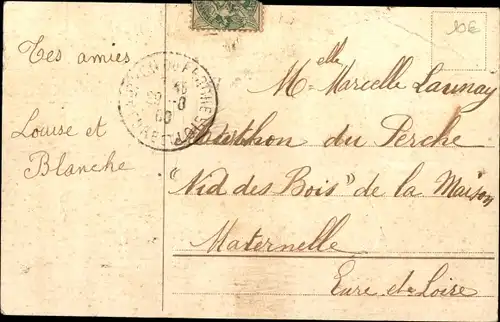 Tes amies
Louise et
Blanche
10€
Melle Marcelle Launay
du Perche
"Nid des Bois" de la Maison
Maternelle
Eure et Loire